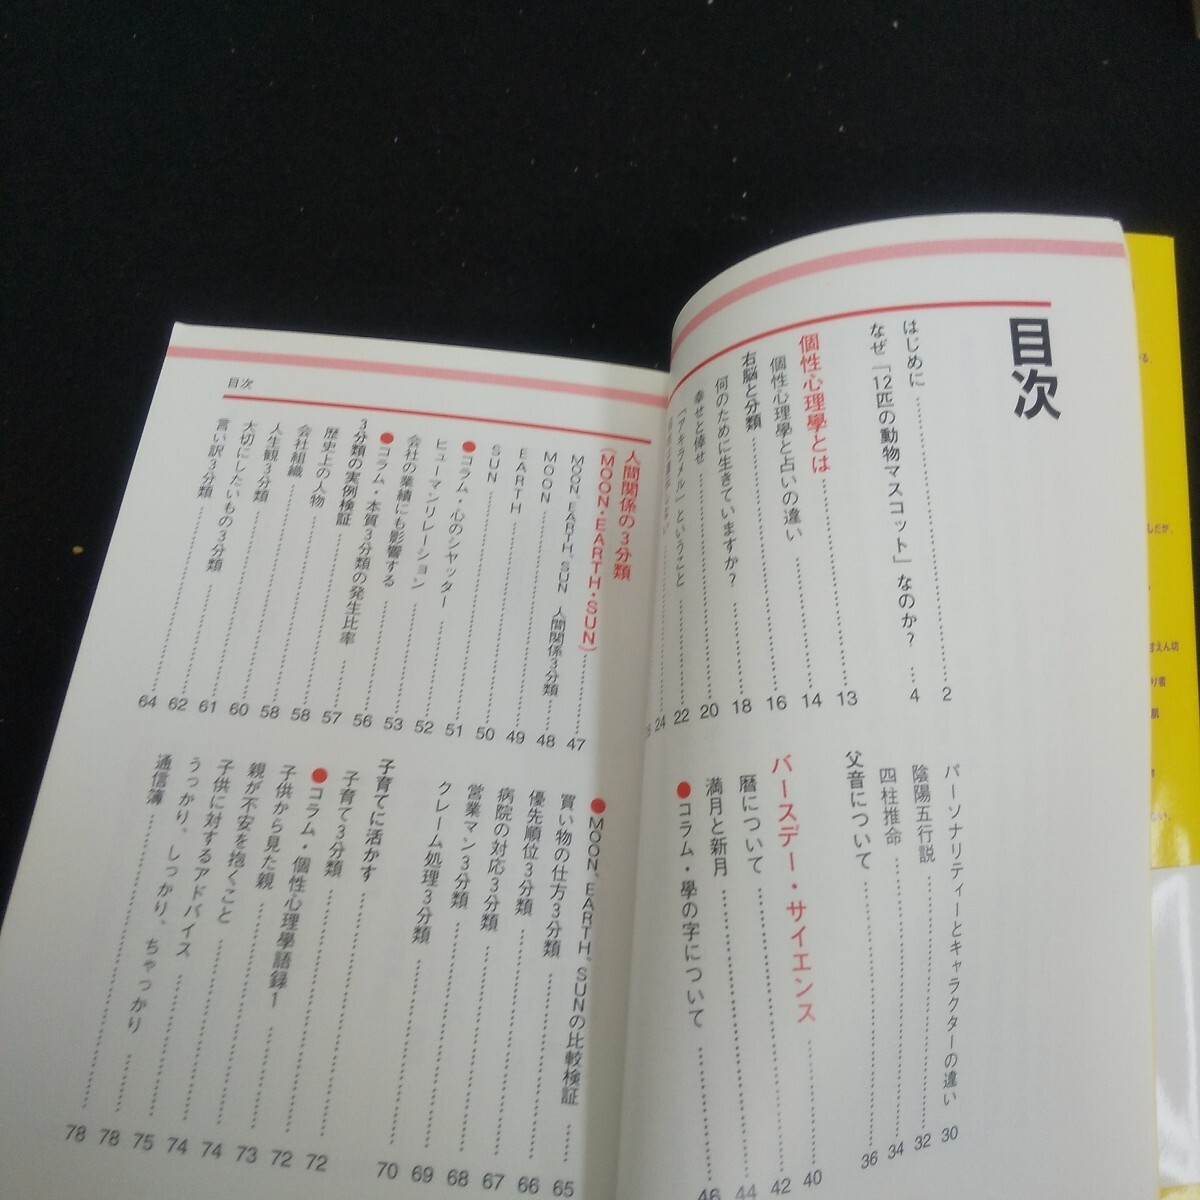 目次
はじめに 2
なぜ「12匹の動物マスコット」なのか? 4
個性心理學とは 13
個性心理學と占いの違い 14
右脳と分類 16
何のために生きていますか? 18
幸せと倖せ 20
「アキラメル」ということ 22
24
パーソナリティーとキャラクターの違い 30
陰陽五行説 32
四柱推命 34
父音について 36
バースデー・サイエンス 40
暦について 42
満月と新月 44
●コラム・學の字について 46
目次
人間関係の3分類
(MOON・EARTH・SUN) 47
MOON、EARTH、SUN 人間関係3分類 48
MOON 49
EARTH 50
SUN 51
●コラム・心のシャッター 52
ヒューマンリレーション 53
会社の業績にも影響する 56
●コラム・本質3分類の発生比率 57
3分類の実例検証 58
歴史上の人物 58
会社組織 60
人生観3分類 61
大切にしたいもの3分類 62
言い訳3分類 64
●MOON、EARTH、SUNの比較検証 65
買い物の仕方3分類 66
優先順位3分類 67
病院の対応3分類 68
営業マン3分類 69
クレーム処理3分類 70
子育てに活かす 72
子育て3分類 72
●コラム・個性心理學語録1 73
子供から見た親 74
親が不安を抱くこと 74
子供に対するアドバイス 75
うっかり、しっかり、ちゃっかり 78
通信簿 78